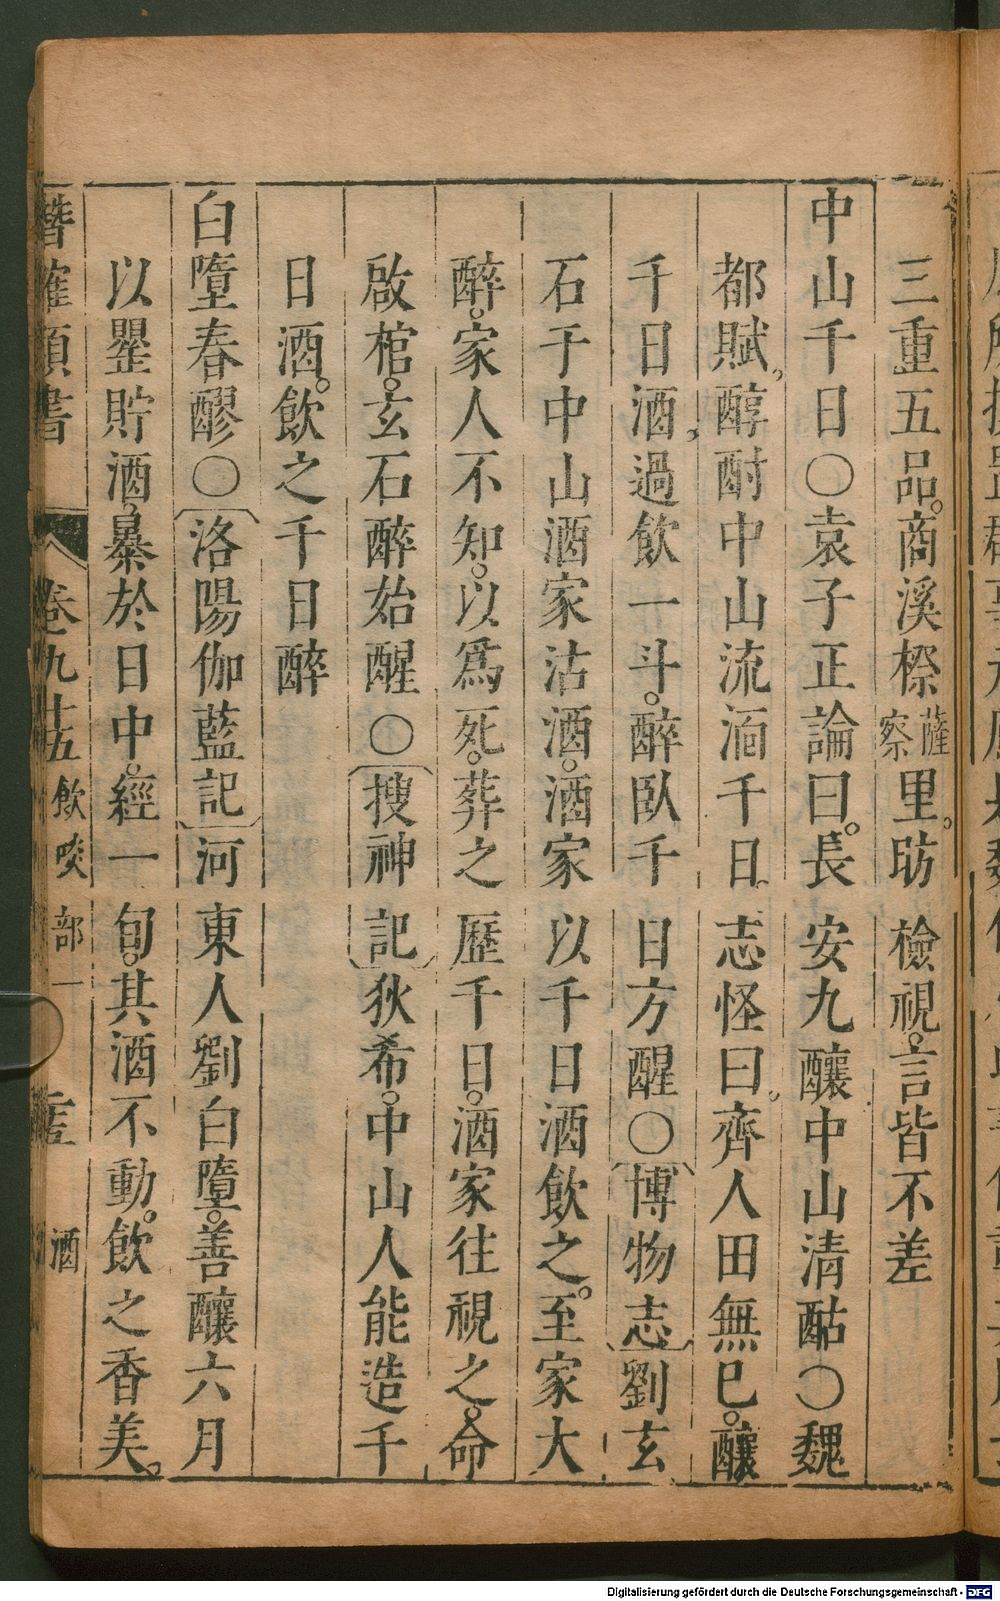 三重五品。商溪檫薩察里。昉檢視。言皆不差
中山千日〇袁子正論曰。長安九釀中山清酤〇魏
都賦。醇酎中山流湎千日。志怪曰。齊人田無已。釀
千日酒。過飲一斗。醉臥千日方醒〇博物志劉玄
石于中山酒家沽酒。酒家以千日酒飲之。至家大
醉。家人不知。以爲死。葬之歷千日。酒家往視之。命
啟棺。玄石醉始醒〇搜神記狄希。中山人能造千
日酒。飲之千日醉
白墮春醪〇洛陽伽藍記河東人劉白墮。善釀六月
以罌貯酒。暴於日中。經一旬。其酒不動。飲之香美。
潛確類書 卷九十五 飲啖部一 酒
Digitalisierung gefördert durch die Deutsche Forschungsgemeinschaft - DFG